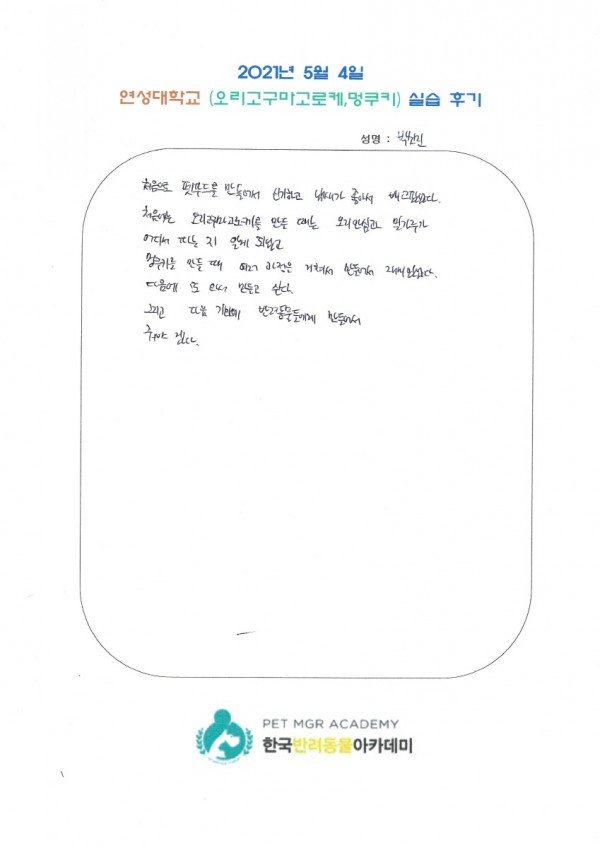 2021년 5월 4일
연성대학교 (오리고구마고로케,멍쿠키) 실습 후기
성명 :
처음으로 펫푸드를 만들어서 신기하고 냄새가 좋아서 배고팠다.
처음에는 오리고구마고로케를 만들 때는 오리안심과 말가루가
어디서 파는 지 알게 되었고
멍쿠키를 만들 때 여러 과정은 거쳐서 만들어서 재미있었다.
다음에 또 와서 만들고 싶다.
그리고 다음 기회에 반려동물들에게 만들어서
줘야 겠다.
PET MGR ACADEMY
한국반려동물아카데미